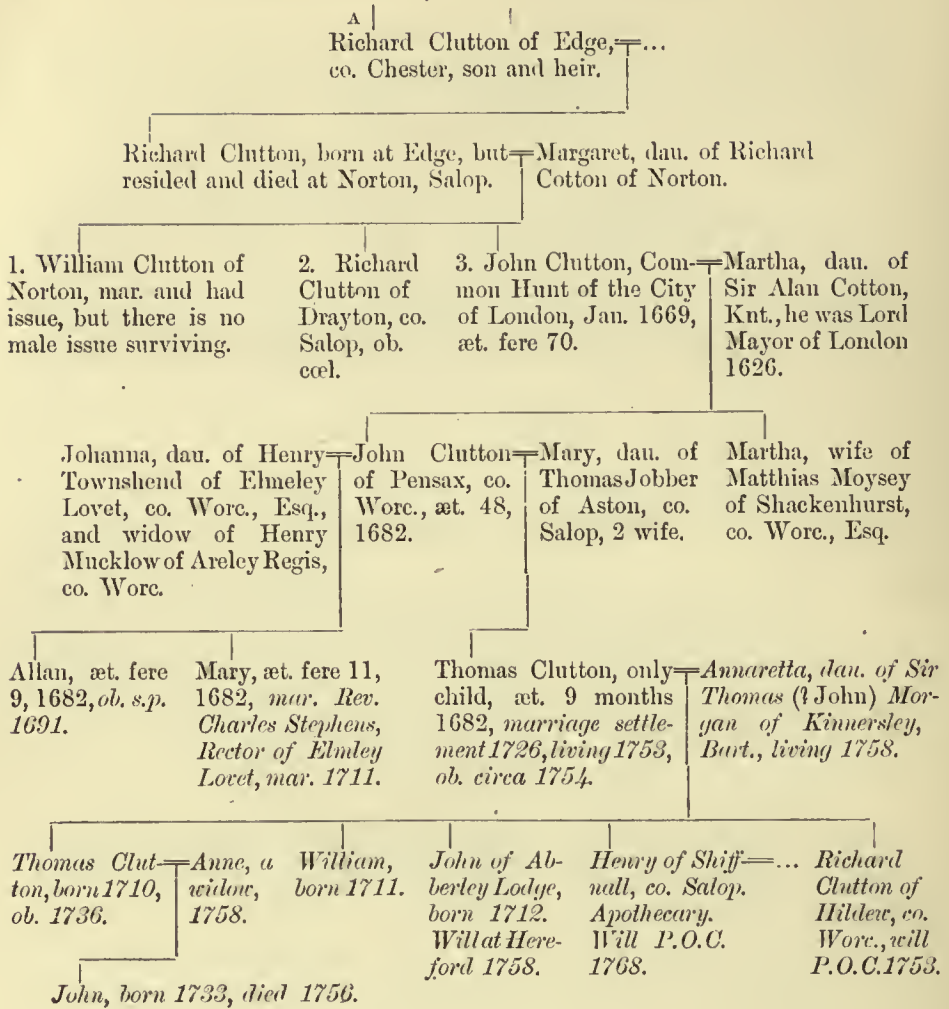 A
Richard Clutton of Edge, ...
co. Chester, son and heir.
Richard Clutton, born at Edge, but
resided and died at Norton, Salop.
Margaret, dau. of Richard
Cotton of Norton.
1. William Clutton of
Norton, mar. and had
issue, but there is no
male issue surviving.
2. Richard
Clutton of
Drayton, co.
Salop, ob.
cœl.
3. John Clutton, Com-
mon Hunt of the City
of London, Jan. 1669,
æt. fere 70.
Martha, dau. of
Sir Alan Cotton,
Knt., he was Lord
Mayor of London
1626.
Johanna, dau. of Henry
Townshend of Elmeley
Lovet, co. Worc., Esq.,
and widow of Henry
Mucklow of Areley Regis,
co. Worc.
John Clutton
of Pensax, co.
Worc., æt. 48,
1682.
Mary, dau. of
Thomas Jobber
of Aston, co.
Salop, 2 wife.
Martha, wife of
Matthias Moysey
of Shackenhurst,
co. Worc., Esq.
Allan, æt. fere
9, 1682, ob. s.p.
1691.
Mary, æt. fere 11,
1682, mar. Rev.
Charles Stephens,
Rector of Elmley
Lovet, mar. 1711.
Thomas Clutton, only
child, æt. 9 months
1682, marriage settle-
ment 1726, living 1753,
ob. circa 1754.
Annaretta, dau. of Sir
Thomas (? John) Mor-
gan of Kinnersley,
Bart., living 1758.
Thomas Clut-
ton, born 1710,
ob. 1736.
Anne, a
widow,
1758.
William,
born 1711.
John of Ab-
berley Lodge,
born 1712.
Will at Here-
ford 1758.
Henry of Shiff-
nall, co. Salop.
Apothecary.
Will P.O.C.
1768.
...
Richard
Clutton of
Hildew, co.
Worc., will
P.O.C. 1753.
John, born 1733, died 1756.